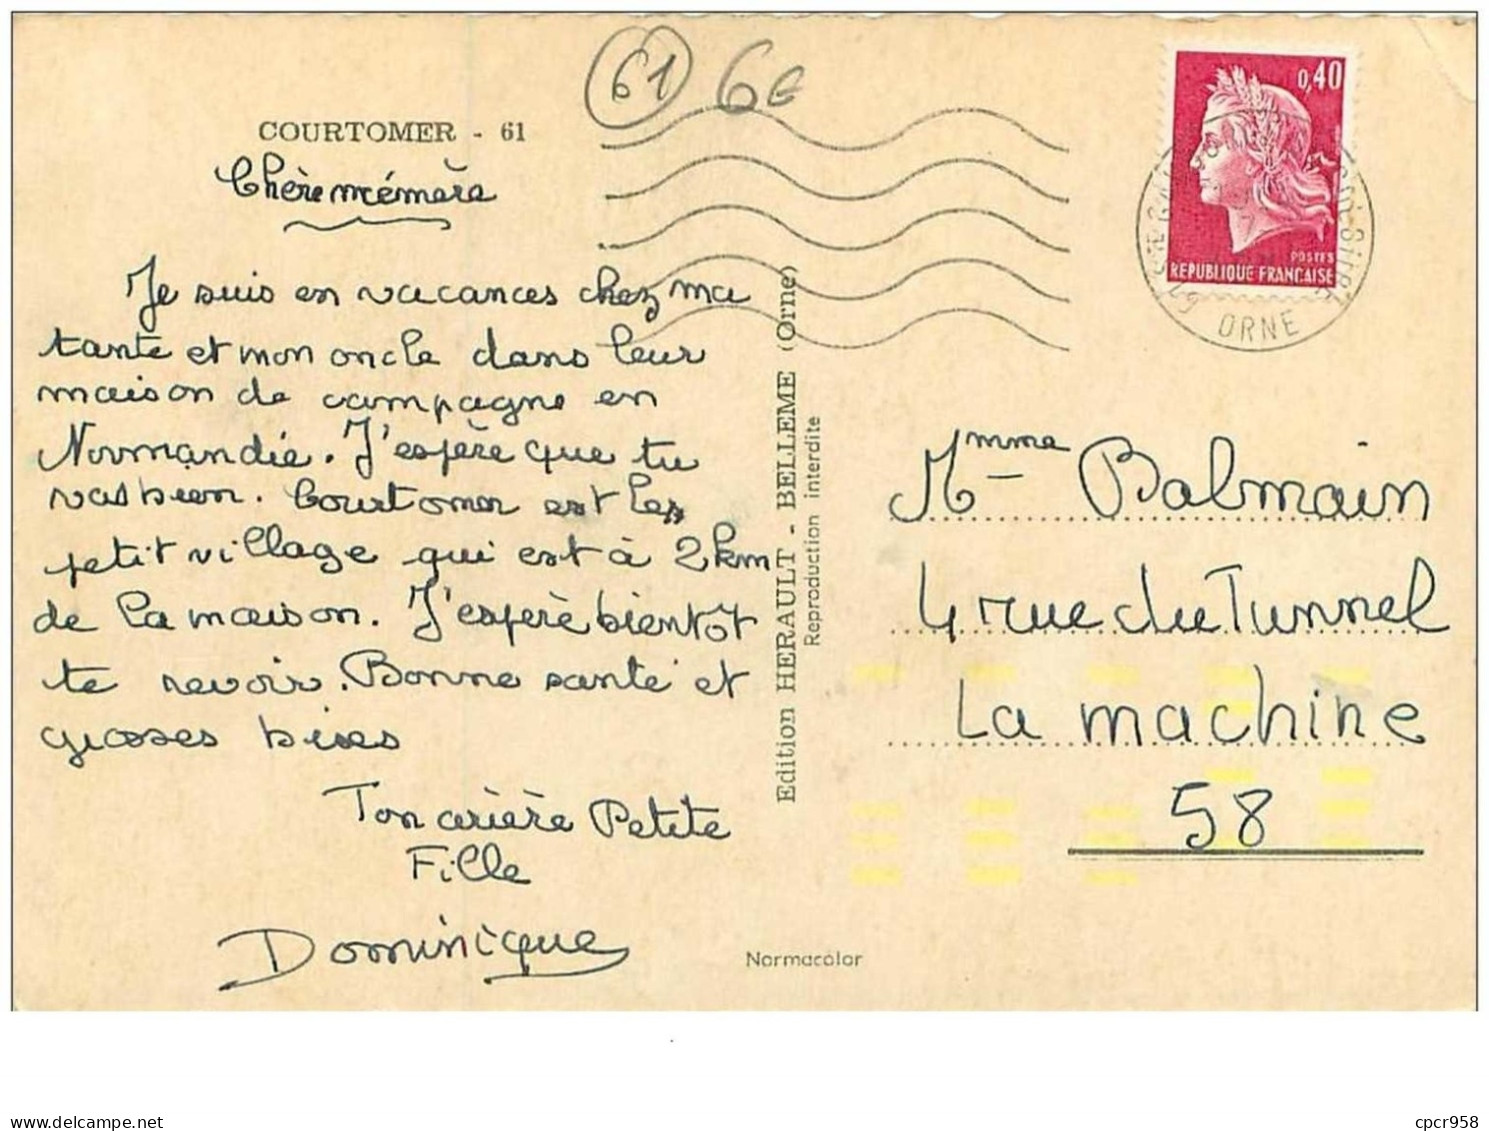 61 6€
COURTOMER - 61
Chère mémère
Je suis en vacances chez ma
tante et mon oncle dans leur
maison de campagne en
Normandie. J'espère que tu
vas bien. Courtomer est le
petit village qui est à 2 km
de la maison. J'espère bientôt
te revoir. Bonne santé et
grosses bises
Ton arière Petite
Fille
Dominique
Edition HERAULT - BELLEME (Orne)
Reproduction interdite
Normacolor
0,40
POSTES
REPUBLIQUE FRANÇAISE
ORNE
Mme Balmain
4 rue du Tunnel
La machine
58
cpcr958